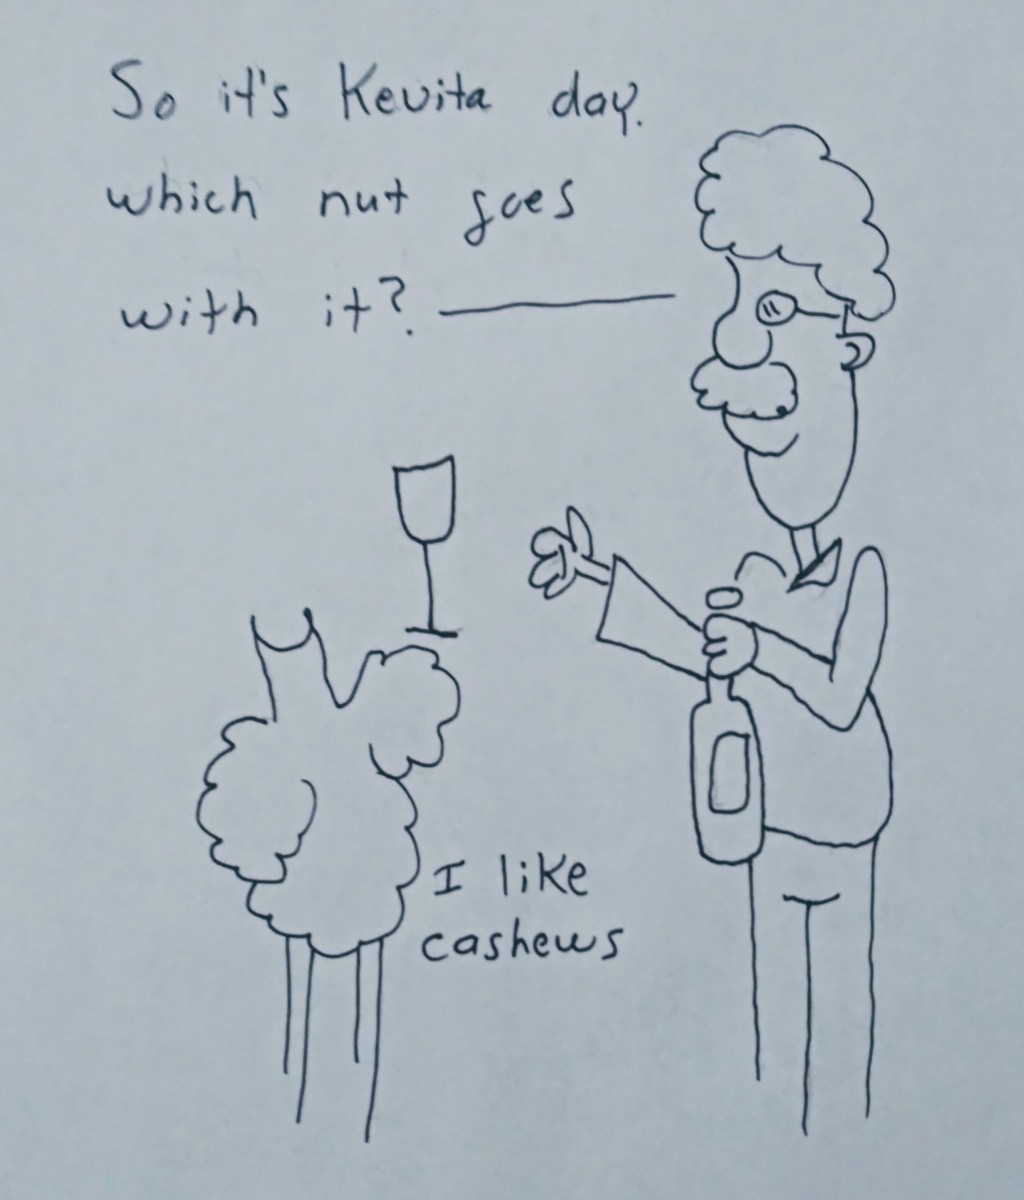 So it's Kevita day.
which nut goes
with it?
I like
cashews